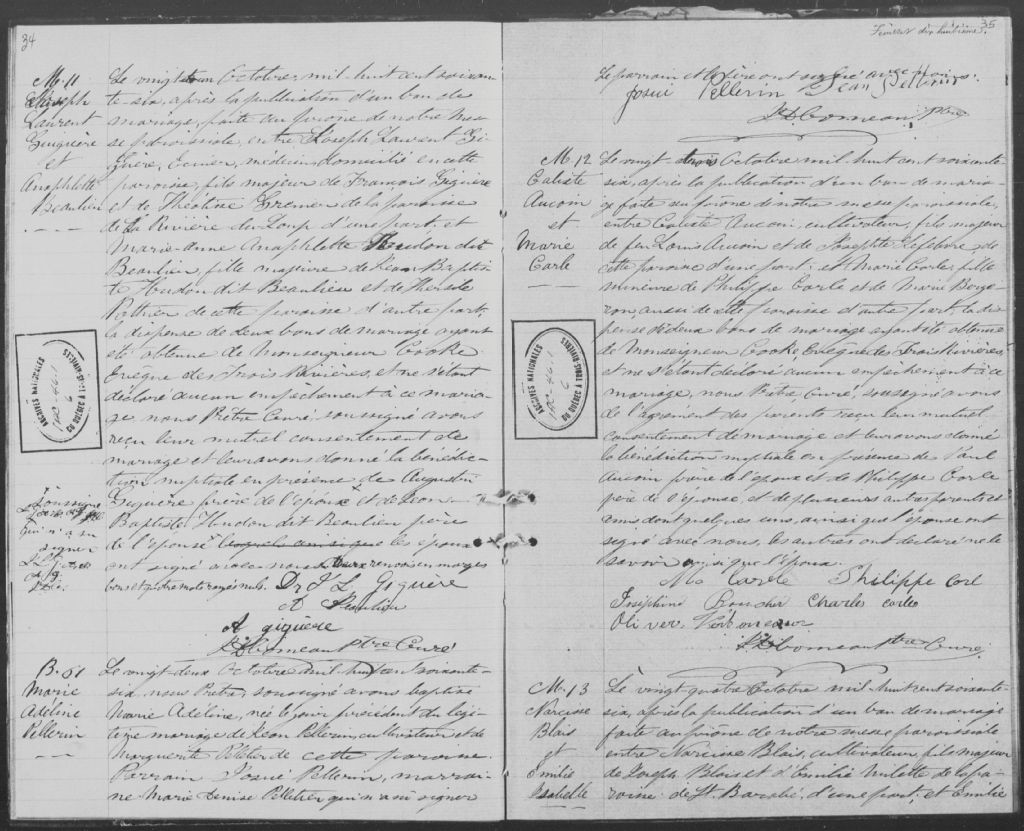 34
M. 11
Joseph
Laurent
Giguère
et
Anaphlette
Beaulieu
Le vingt un Octobre mil huit cent soixan-
te-six, après la publication d'un ban de
mariage, faite au prône de notre mes-
se paroissiale, entre Joseph Laurent Gi-
guère, Ecuier, médecin domicilié en cette
paroisse, fils majeur de François Giguère
et de Théotine Grenier de la paroisse
de la Rivière du Loup d'une part, et
Marie-Anne Anaphlette Hudon dit
Beaulieu, fille majeure de Jean Baptis-
te Hudon dit Beaulieu et de
de cette paroisse d'autre part,
la dispense de deux bans de mariage ayant
été obtenue de Monseigneur Cooke
Evêque des Trois Rivières, et ne s'étant
déclaré aucun empêchement à ce maria-
ge, nous Prêtre Curé soussigné avons
reçu leur mutuel consentement de
mariage et leur avons donné la bénédic-
tion nuptiale en présence de Augustin
Giguère frère de l'époux et de Jean
Baptiste Hudon dit Beaulieu père
de l'épouse lesquels ainsi que les époux
ont signé avec nous. Deux renvois en marge
bons et quatre mots rayés nuls.
soussigné
qui n'a su
signer
Dr J L Giguère
A Beaulieu
A giguère
D Comeau Ptre Curé
B. 61
Marie
Adéline
Pellerin
Le vingt-deux Octobre mil huit cent soixante-
six, nous Prêtre, soussigné avons baptisé
Marie Adéline, née le jour précédent du légi-
time mariage de Jean Pellerin, cultivateur et de
Marguerite Pelletier de cette paroisse.
Parrain Josué Pellerin, marrai-
ne Marie Denise Pelletier qui n'a su signer
35
Feuillet dix huitième.
Le parrain et le père ont signé avec nous.
Josué Pellerin Jean Pellerin
D Comeau Ptre
M. 12
Caliste
Aucoin
et
Marie
Carle
Le vingt trois Octobre mil huit cent soixante-
six, après la publication d'un ban de maria-
ge faite au prône de notre messe paroissiale,
entre Caliste Aucoin, cultivateur, fils majeur
de feu Louis Aucoin et de Josephte Lefebvre de
cette paroisse d'une part; et Marie Carle, fille
mineure de Philippe Carle et de Marie Berge-
ron aussi de cette paroisse d'autre part, la dis-
pense de deux bans de mariage ayant été obtenue
de Monseigneur Cooke, Evêque des Trois Rivières,
et ne s'étant déclaré aucun empêchement à ce
mariage, nous Prêtre Curé, soussigné avons
de l'agrément des parents reçu leur mutuel
consentement de mariage et leur avons donné
la bénédiction nuptiale en présence de Paul
Aucoin frère de l'époux et de Philippe Carle
père de l'épouse, et de plusieurs autres parents et
amis dont quelques uns, ainsi que l'épouse ont
signé avec nous, les autres ont déclaré ne le
savoir ainsi que l'époux.
Carle Philippe Carl
Joséphine Boucher Charles Carle
Oliver
D Comeau Ptre Curé
M. 13
Narcisse
Blais
et
Emilie
Isabelle
Le vingt quatre Octobre mil huit cent soixante-
six, après la publication d'un ban de mariage
faite au prône de notre messe paroissiale
entre Narcisse Blais, cultivateur, fils majeur
de Joseph Blais et d'Emilie Milette de la pa-
roisse de St. Barnabé, d'une part, et Emilie
ARCHIVES NATIONALES
DU QUÉBEC À TROIS-RIVIÈRES
ARCHIVES NATIONALES
DU QUÉBEC À TROIS-RIVIÈRES